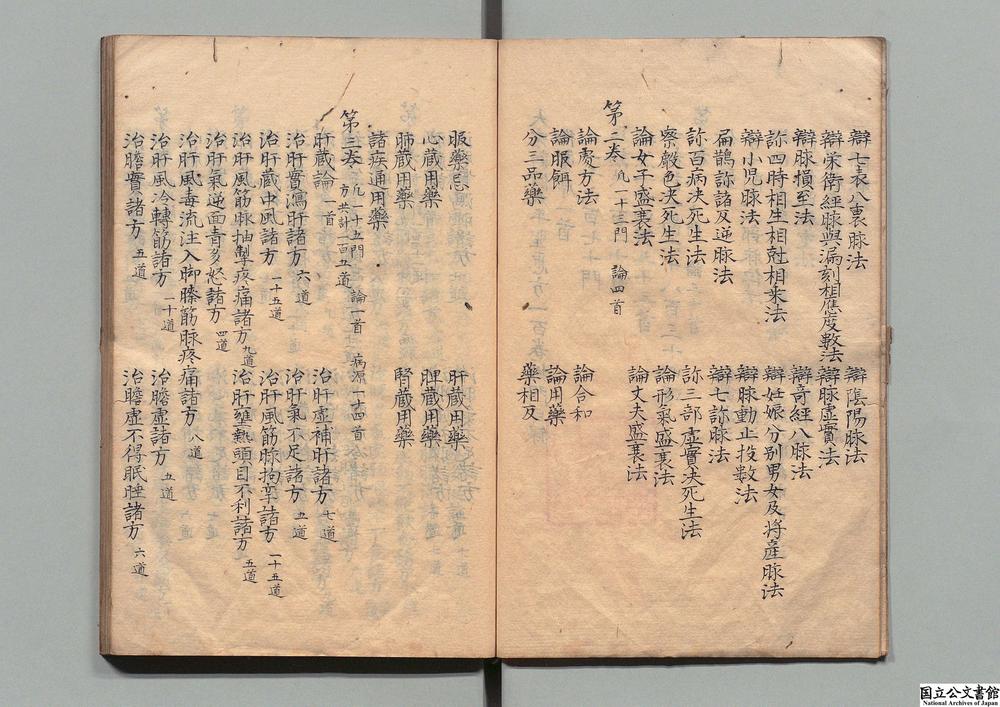 辯七表八裏脉法 辯陰陽脉法
辯榮衛經脉與漏刻相應度數法 辯脉虛實法
辯脉損至法 辯竒經八脉法
診四時相生相尅相乗法 辯妊娠分別男女及将産脉法
辯小児脉法 辯脉動止投數法
扁鵲診諸及逆脉法 辯七診脉法
診百病决死生法 診三部虛實决死生法
察聲色决死生法 論形氣盛衰法
論女子盛衰法 論丈夫盛衰法
第二巻 凡一十三門 論四首
論處方法 論合和
論服餌 論用藥
分三品藥 藥相反
服藥忌 肝藏用藥
心藏用藥 脾藏用藥
肺藏用藥 腎藏用藥
諸疾通用藥
第三巻 凡一十五門 論一首 病源一十四首 方共計一百五道
肝藏論 一首 治肝虛補肝諸方 七道
治肝實瀉肝諸方 六道 治肝氣不足諸方 五道
治肝藏中風諸方 一十五道 治肝風筋脉拘孿諸方 一十五道
治肝風筋脉抽掣疼痛諸方 九道 治肝壅熱頭目不利諸方 五道
治肝氣逆面青多怒諸方 四道
治肝風毒流注入脚膝筋脉疼痛諸方 八道
治肝風冷轉筋諸方 一十道 治膽虛諸方 五道
治膽實諸方 五道 治膽虛不得眠睡諸方 六道
国立公文書館
National Archives of Japan